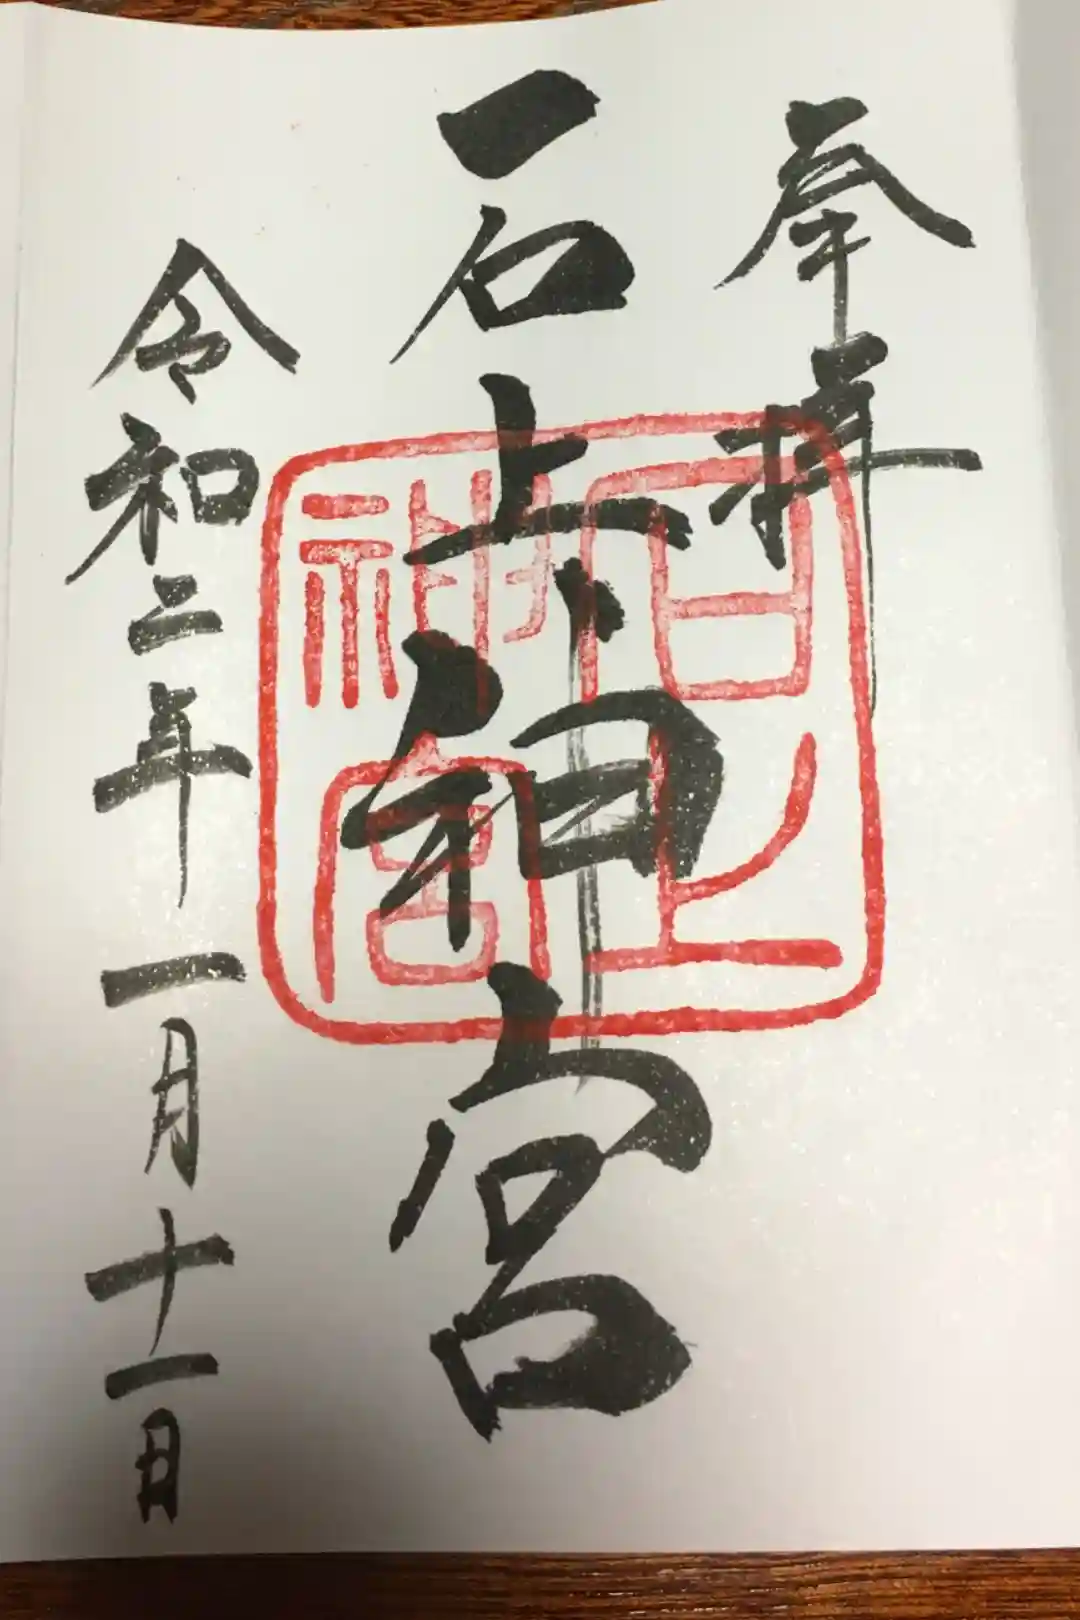 奉拝
石上神宮
石上神宮
令和二年一月十一日